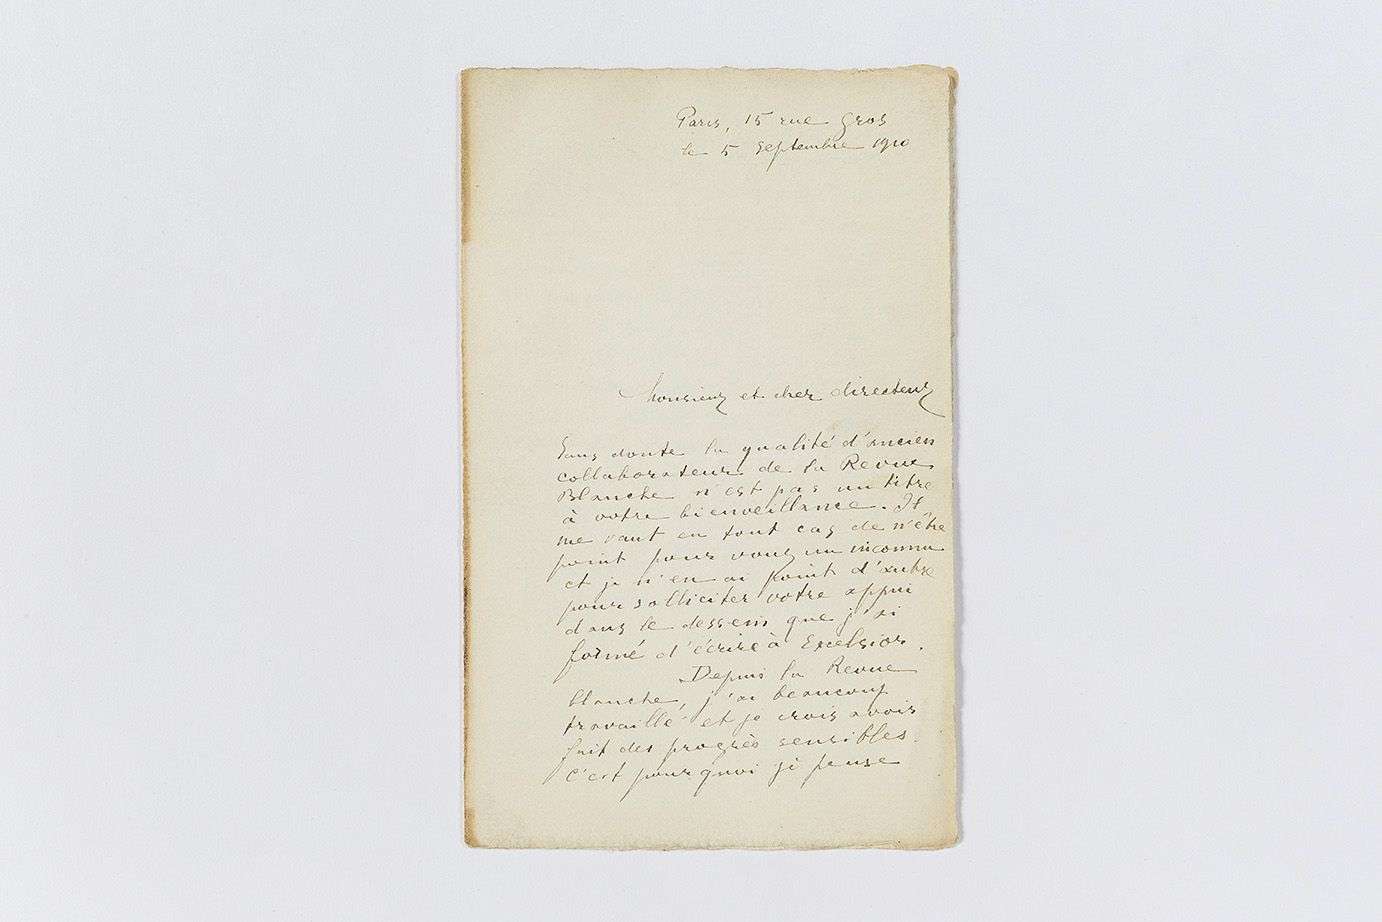 Paris, 15 rue Gros
le 5 Septembre 1910
Monsieur et cher directeur
Sans doute la qualité d'ancien
collaborateur de la Revue
Blanche n'est pas un titre
à votre bienveillance. Il
me vaut en tout cas de n'être
point pour vous un inconnu
et je n'en ai point d'autre
pour solliciter votre appui
dans le dessein que j'ai
formé d'écrire à Excelsior.
Depuis la Revue
blanche, j'ai beaucoup
travaillé et je crois avoir
fait des progrès sensibles.
C'est pourquoi je pense